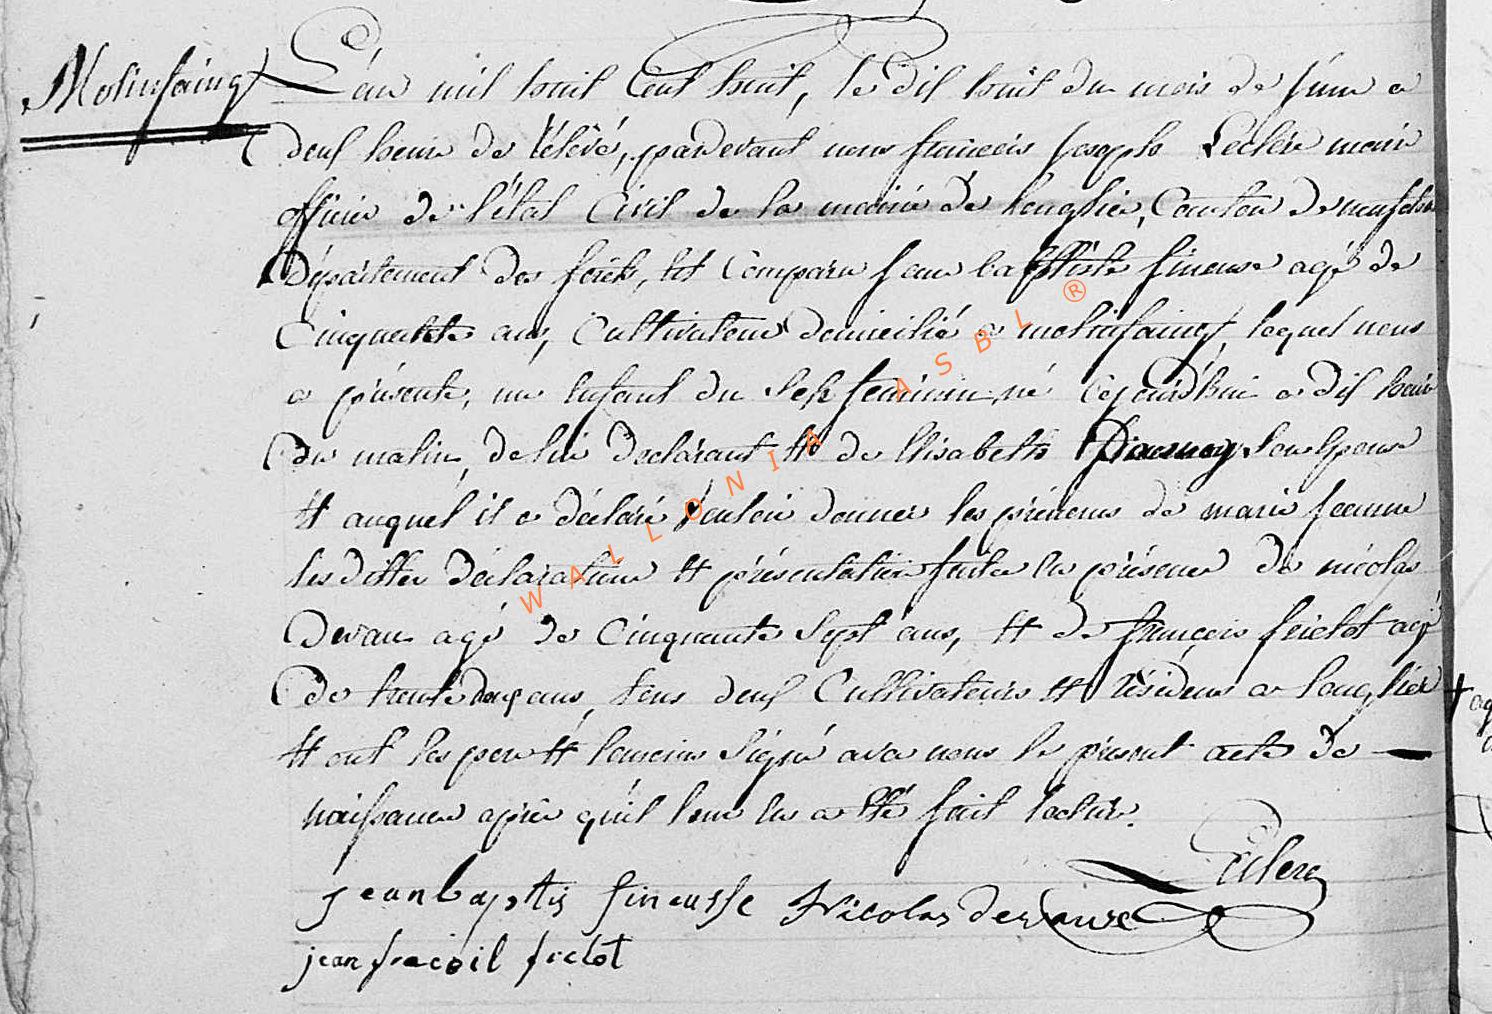 Molinfaing
L'an mil huit Cent huit, le dix huit du mois de Juin a
deux heure de rélévé, pardevant nous françois Joseph Leclere maire
officier de l'état Civil de la mairie de Longlier, Canton de neufchau
Département des forêts, est Comparu Jean baptiste fineuse agé de
Cinquante ans, Cultivateur domicilié a molinfaing, lequel nous
a présenté, un Enfant du Sex feminin né Cejourd'hui a dix heure
du matin, de lui declarant et de Elisabeth Son Epouse
et auquel il a déclaré vouloir donner les prénoms de marie Jeanne
les dittes déclaration et présentation faite En présence de nicolas
Devaux agé de Cinquante Sept ans, et de françois frictot agé
de trente ans, tous deux Cultivateurs et résidens a Longlier
Et ont les pere et temoins Signé avec nous le présent acte de —
naissance après qu'il leur En a Eté fait lecture.
Leclere
jean baptis fineusse Nicolas devaux
jean fracoil frictot
W A L L O N I A A S B L ®